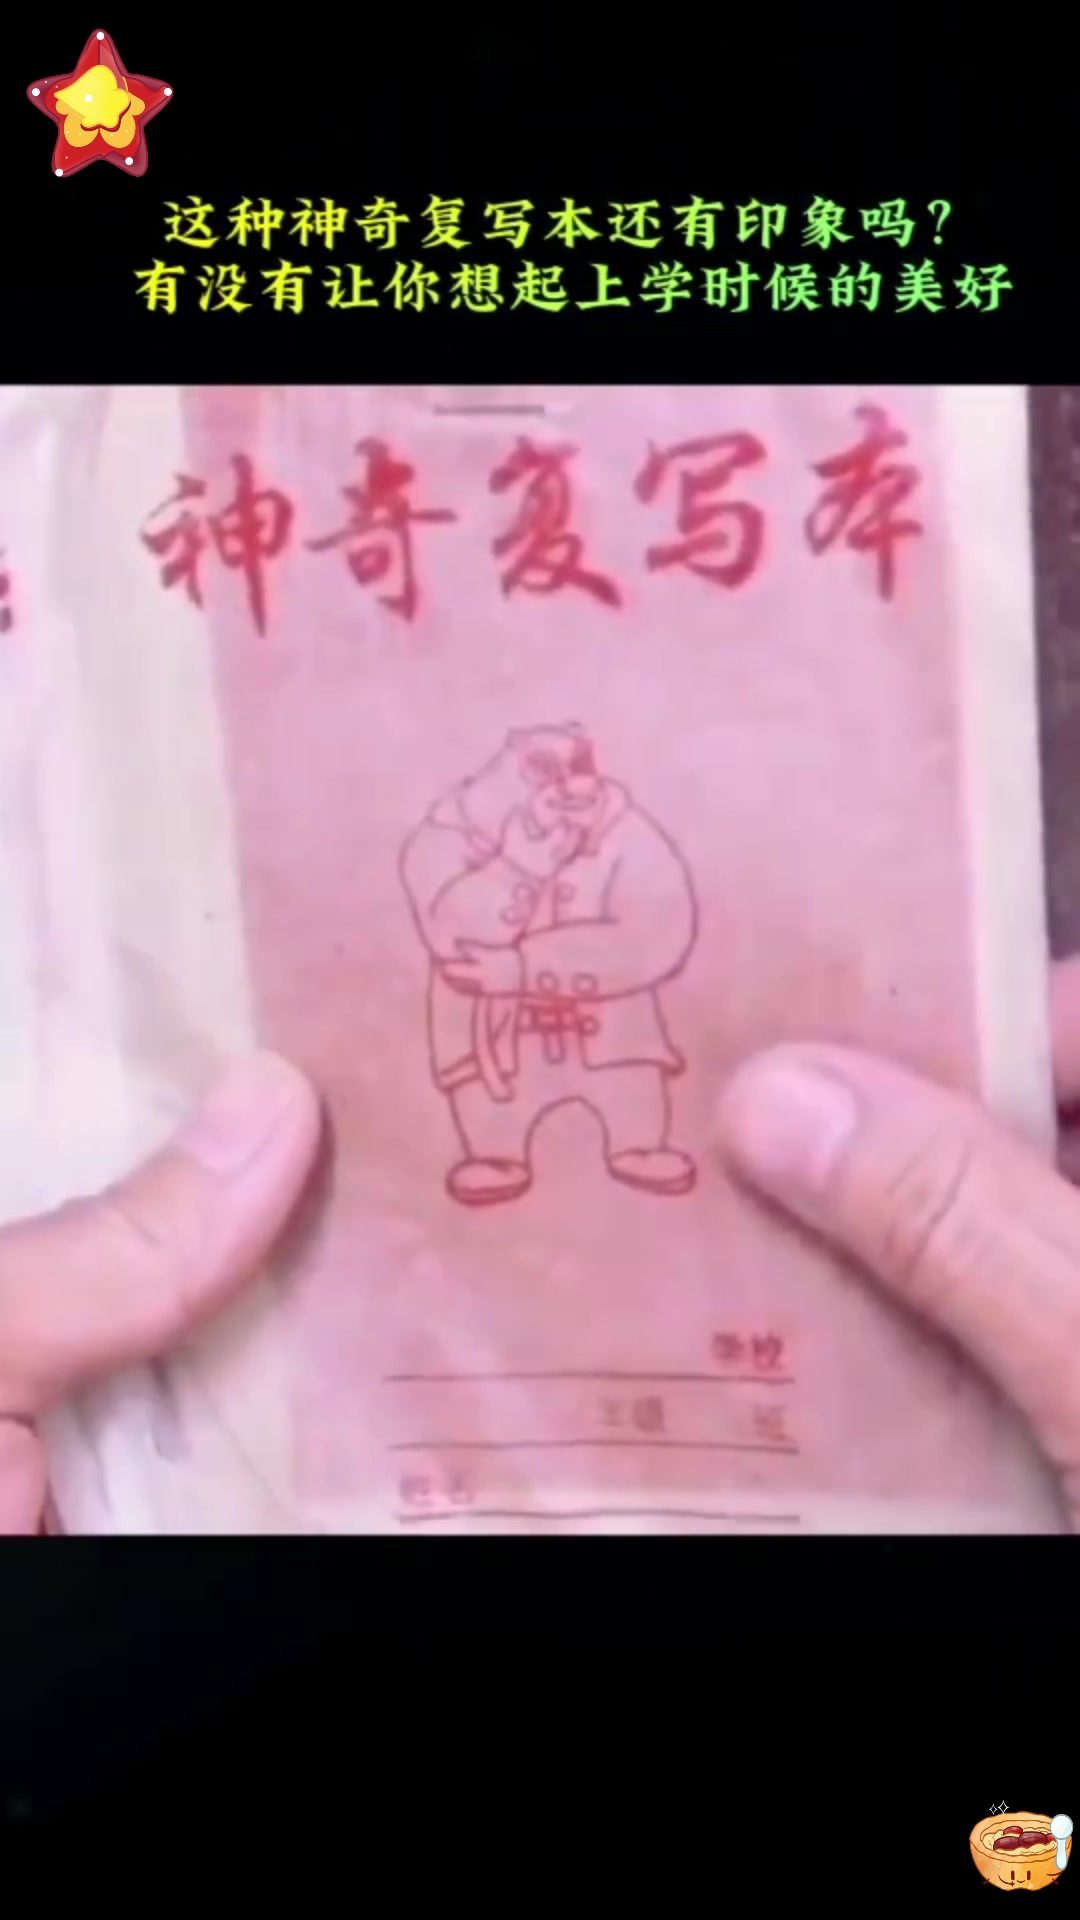 这种神奇复写本还有印象吗？
有没有让你想起上学时候的美好
神奇复写本
学校
班
姓名